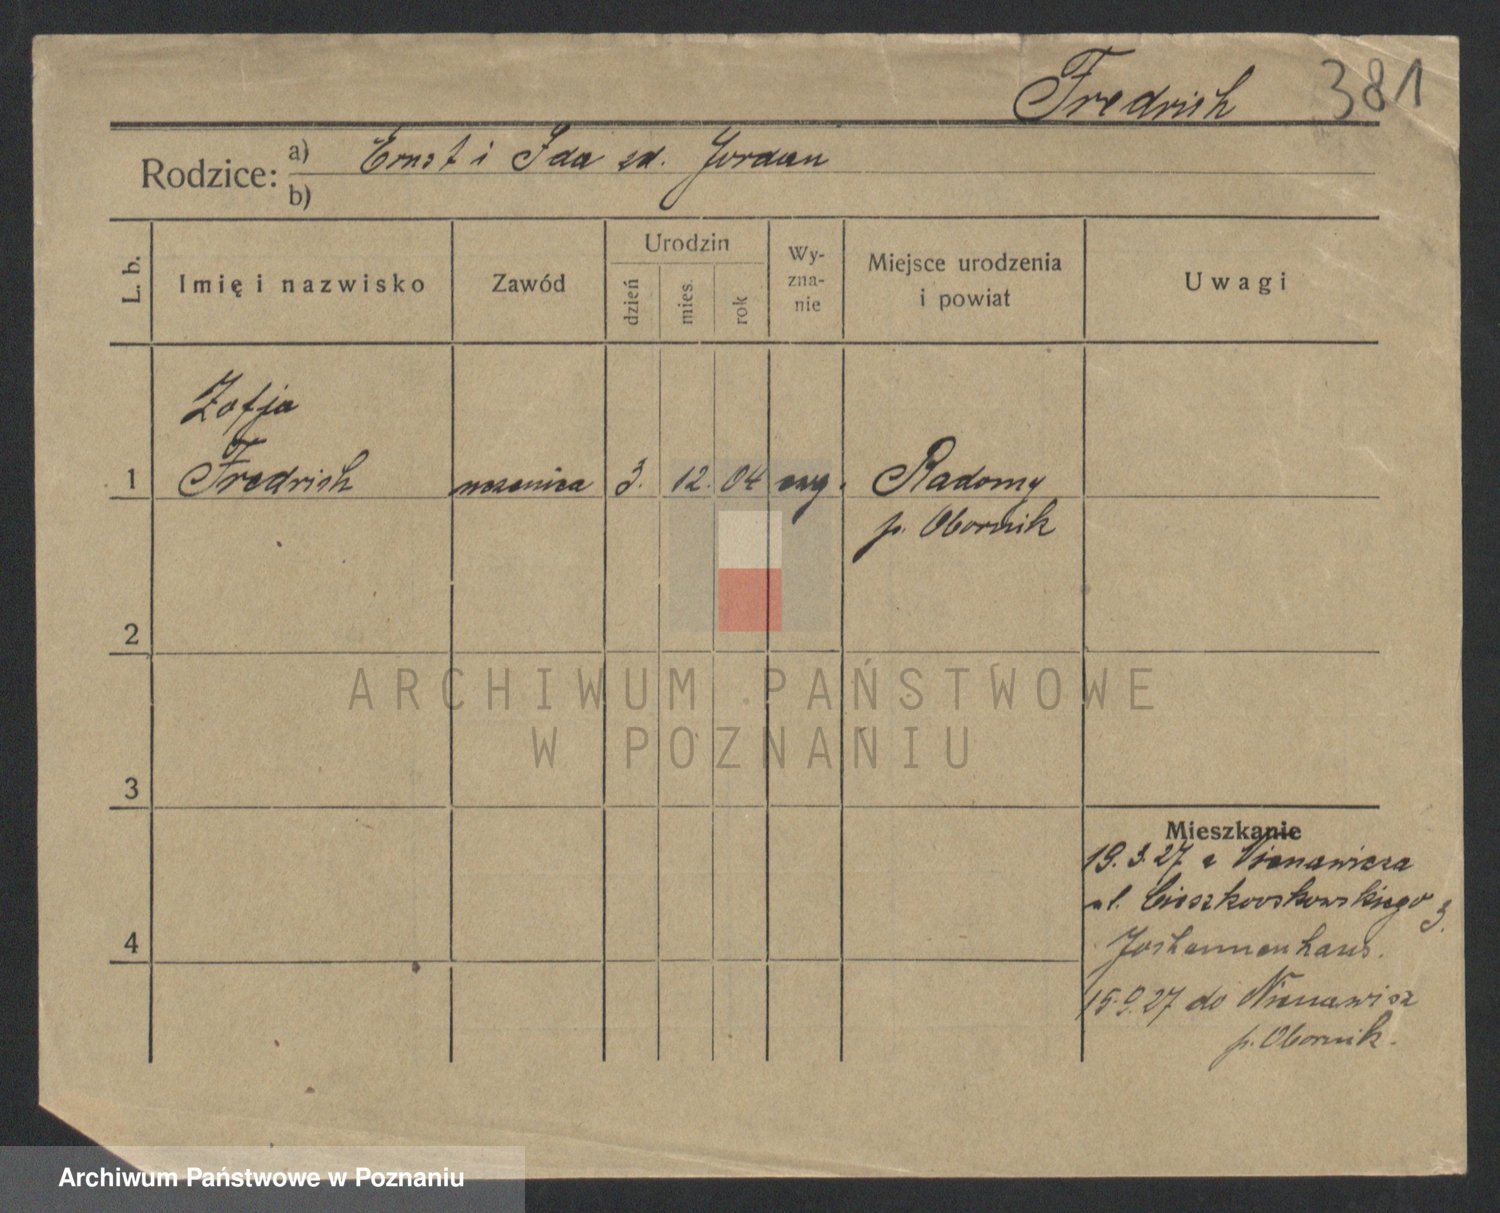 Fredrich 381
Rodzice: a) Ernst i Ida zd. Jordan
b)
L. b.
Imię i nazwisko
Zawód
Urodzin
dzień
mies.
rok
Wy-
zna-
nie
Miejsce urodzenia
i powiat
Uwagi
Zofja
1 Fredrich uczenica 3. 12. 04 ewg. Radomy
p. Obornik
2
ARCHIWUM PAŃSTWOWE
W POZNANIU
3
Mieszkanie
19.3.27 z
ul. Cieszkowskowskiego 3.
Joshannenhaus.
15.9.27 do
p. Obornik.
4
Archiwum Państwowe w Poznaniu